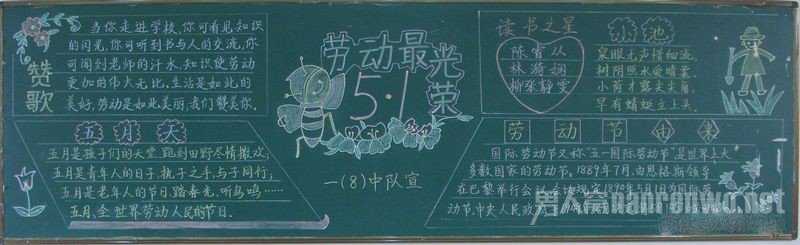 赞歌
当你走进学校,你可看见知识
的闪光,你可听到书与人的交流,你
可闻到老师的汗水,知识使劳动
更加的伟大无比.生活是如此的
美好,劳动是如此美丽,我们赞美你.
五月天
五月是孩子们的天堂,跑到田野尽情撒欢;
五月是青年人的日子,执子之手,与子同行;
五月是老年人的节日,踏春光,听鸟鸣……
五月,全世界劳动人民的节日.
劳动最光荣
5·1
一(8)中队宣
读书之星
陈雷从
林漪娴
柳张静雯
小池
泉眼无声惜细流,
树阴照水爱晴柔.
小荷才露尖尖角,
早有蜻蜓立上头.
劳动节由来
国际劳动节又称"五一国际劳动节",是世界上大
多数国家的劳动节.1889年7月,由恩格斯领导
在巴黎举行会议,会议规定1890年5月1日为国际劳
动节.中央人民政
男人窝nanrenwo.net